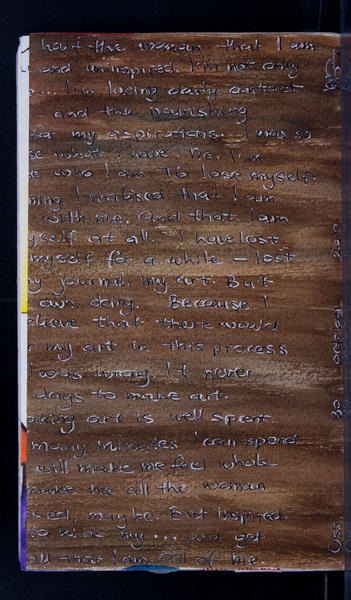 half the woman that I am
and uninspired. I'm not only
... I'm losing daily contact
and the nourishing
for my aspirations.. I was so
what I have. No. I'm
who I am. To lose myself.
I realised that I am
with me. And that I am
myself at all. I have lost
myself for a while - lost
my journal, my art. But
own doing. Because I
believe that there would
my art in this process
was wrong. It never
days to make art.
making art is well spent.
many minutes I can spend
will make me feel whole
make me all the woman
maybe. But inspired.
to kick my ... and get
all that I am. All of me.
30